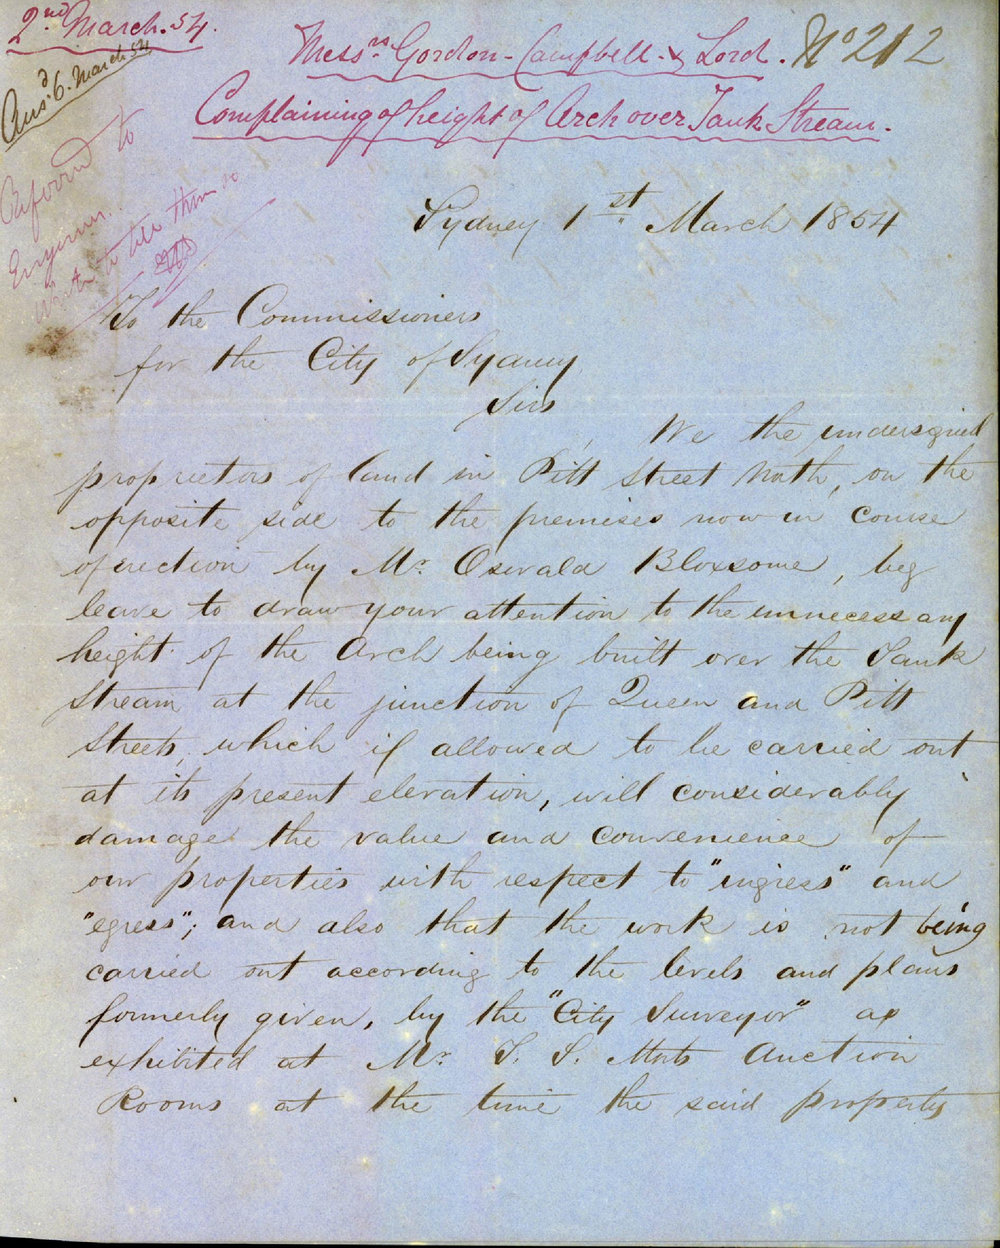 2nd March. 54.
Ansd 6. March 54
Messrs Gordon - Campbell & Lord. No 212
Complaining of height of Arch over Tank Stream.
Referred to
Engineer.
write to tell them so
Sydney 1st March 1854
To the Commissioners
for the City of Sydney
Sirs
We the undersigned
proprietors of land in Pitt Street North, on the
opposite side to the premises now in course
of erection by Mr. Oswald Bloxsome, beg
leave to draw your attention to the unnecessary
height of the Arch being built over the Tank
Stream at the junction of Queen and Pitt
Streets, which if allowed to be carried out
at its present elevation, will considerably
damage the value and convenience of
our properties with respect to "ingress" and
"egress"; and also that the work is not being
carried out according to the levels and plans
formerly given, by the "City Surveyor" as
exhibited at Mr. T. S. Morts Auction
Rooms at the time the said property